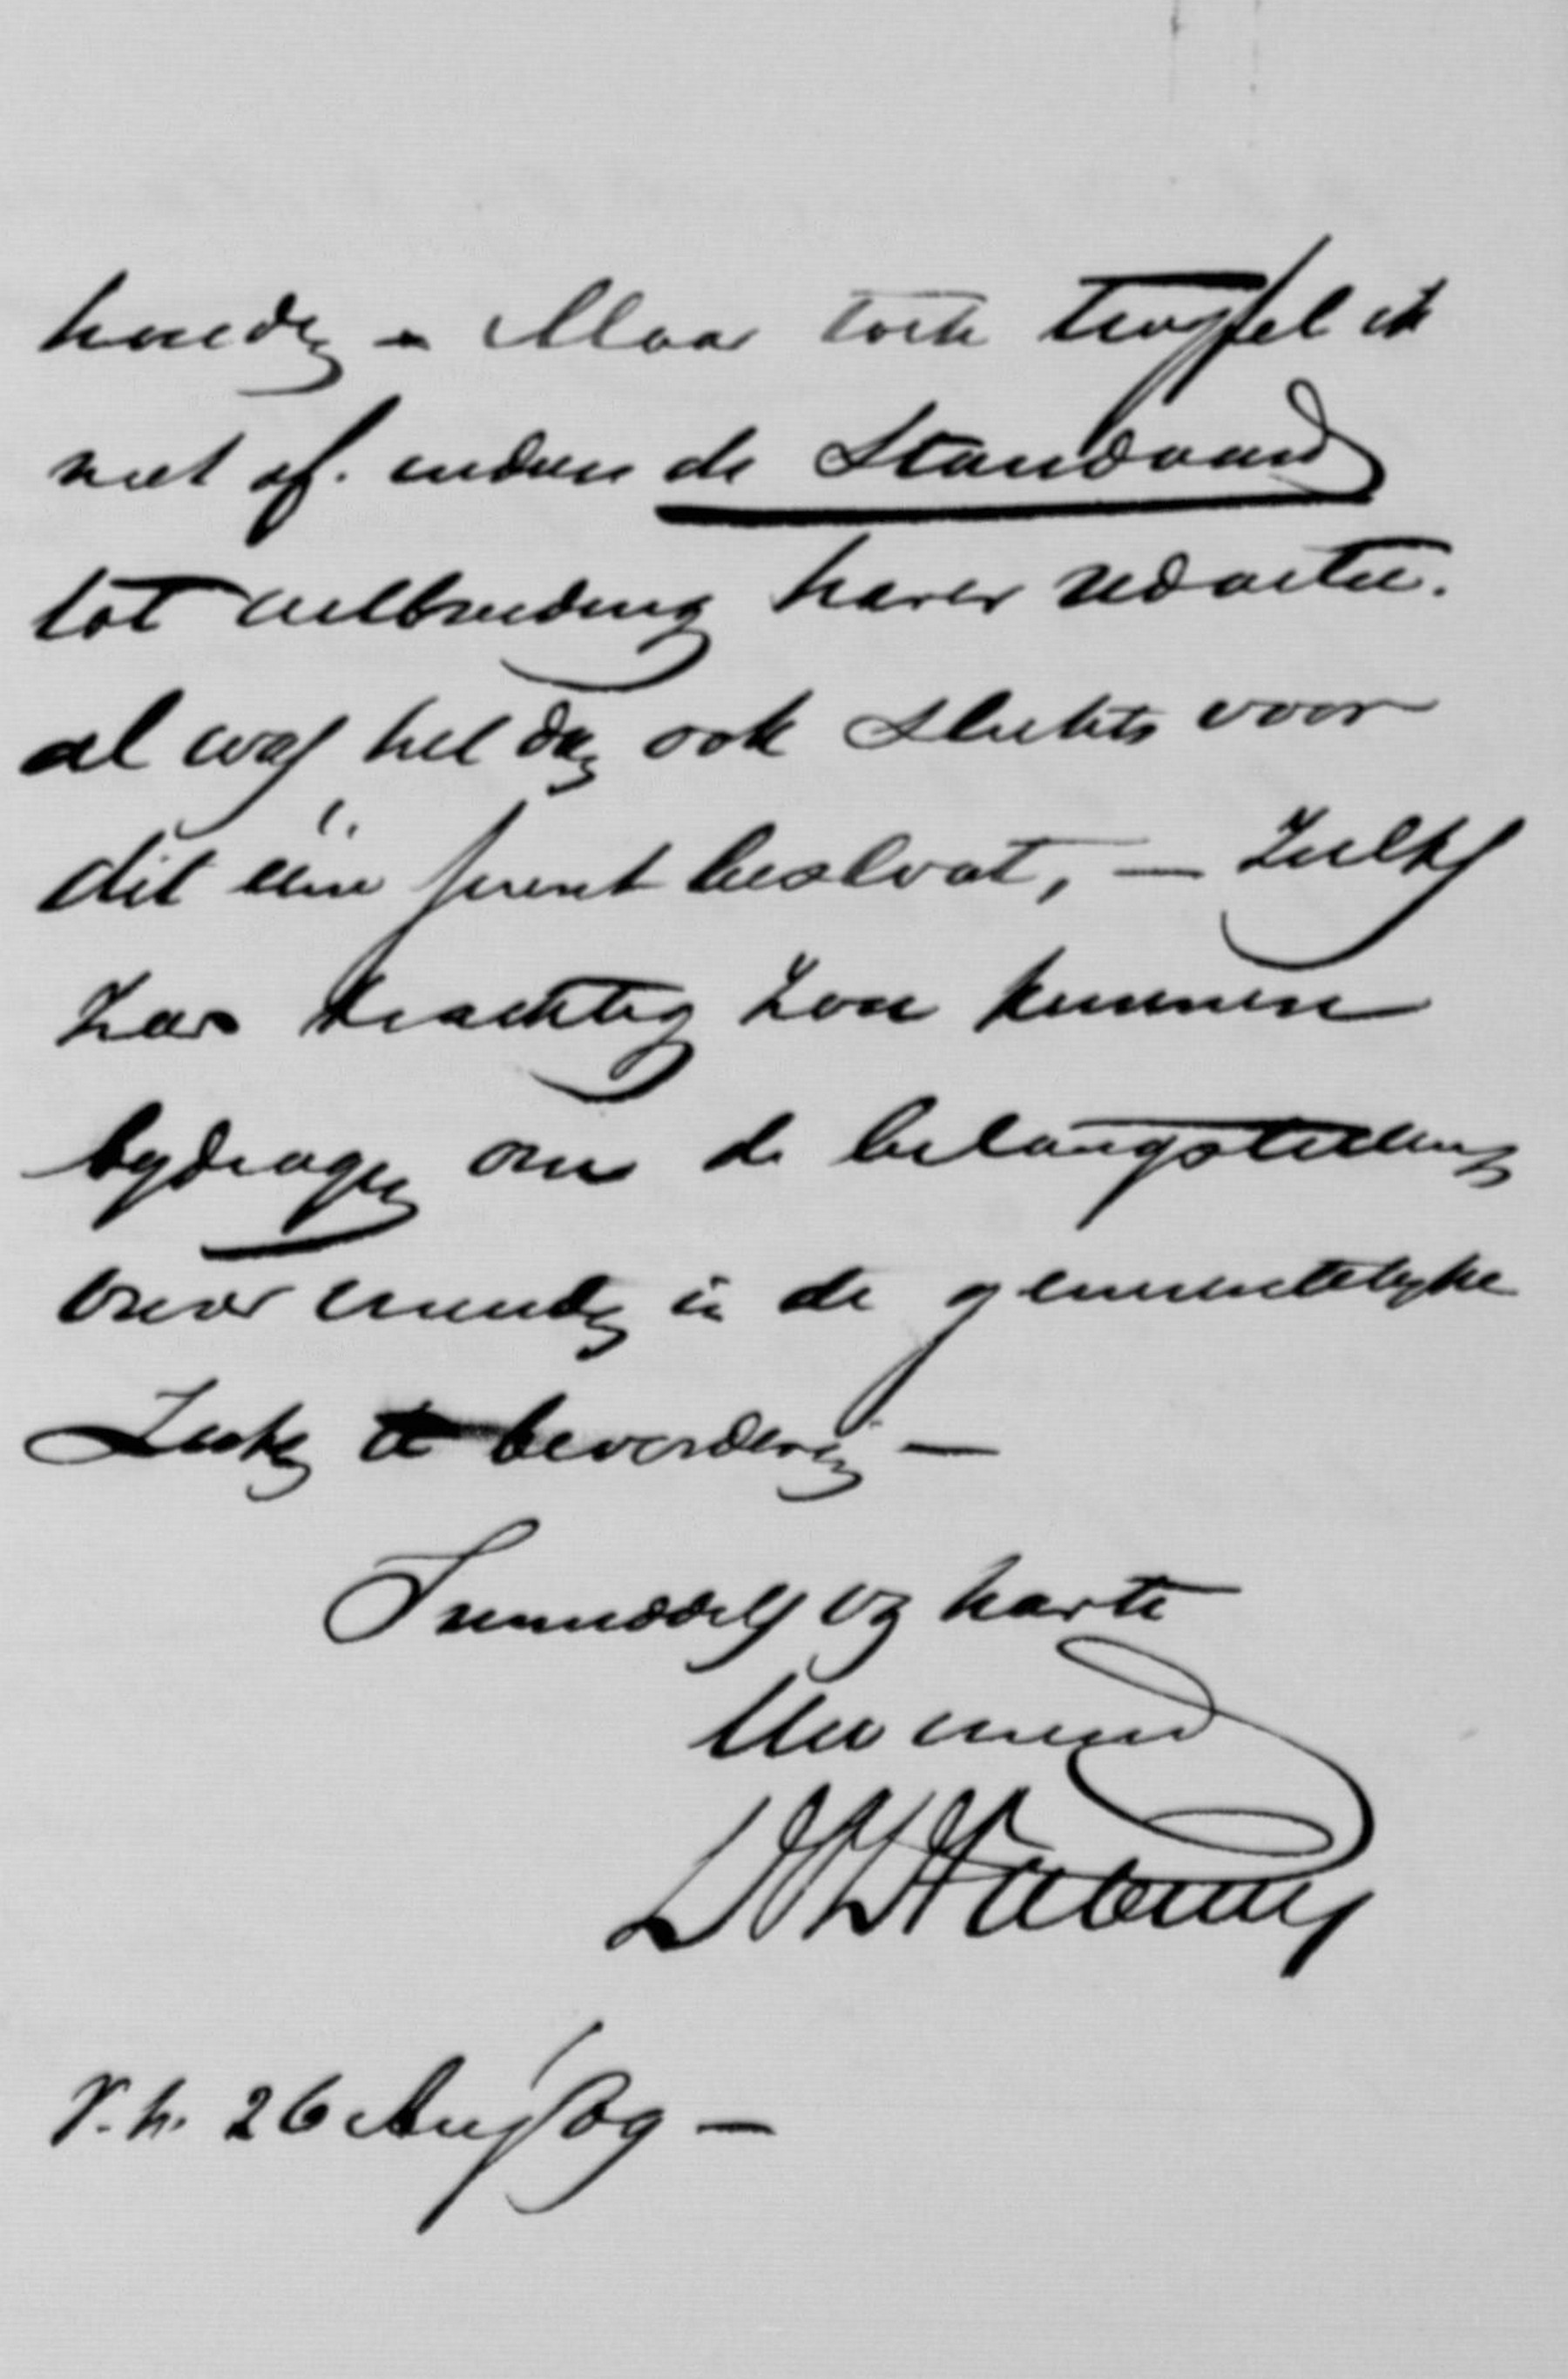 houden – Maar toch twijfel ik
niet of indien de Standaard
tot uitbreiding harer redactie.
al was het dan ook slechts voor
dit eene punt besloot, – Zulks
zeer krachtig zou kunnen
bydragen om de belangstelling
onzer vrienden in de gemeentelyke
Zaken te bevorderen –
Inmiddels van harte
Uw vriend
V.h. 26 Aug/89 –